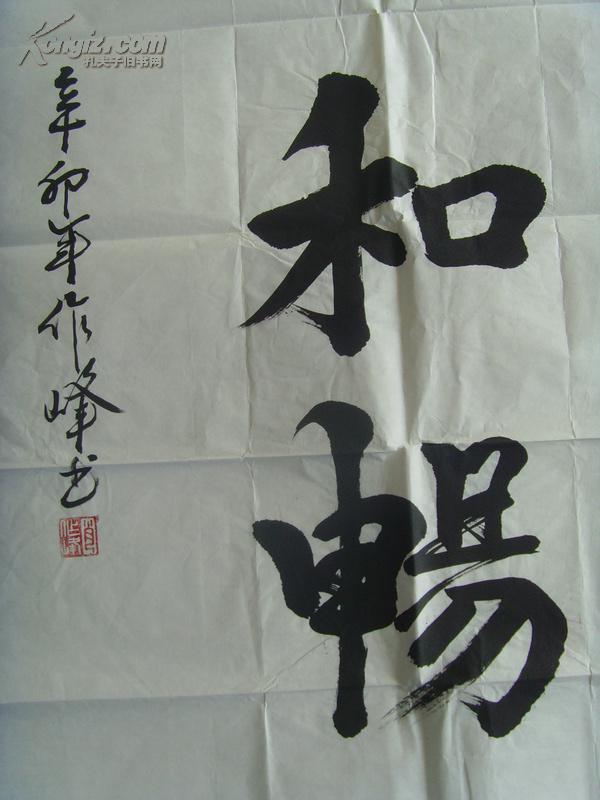 和暢
辛卯年作峰书
Kongfz.com
孔夫子旧书网